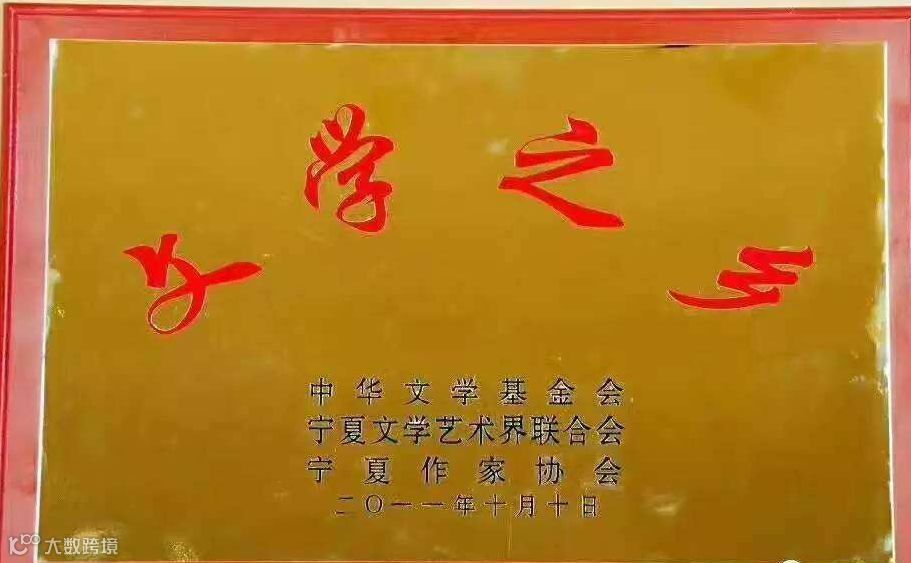 文学之乡
中华文学基金会
宁夏文学艺术界联合会
宁夏作家协会
二〇一一年十月十日
大数跨境